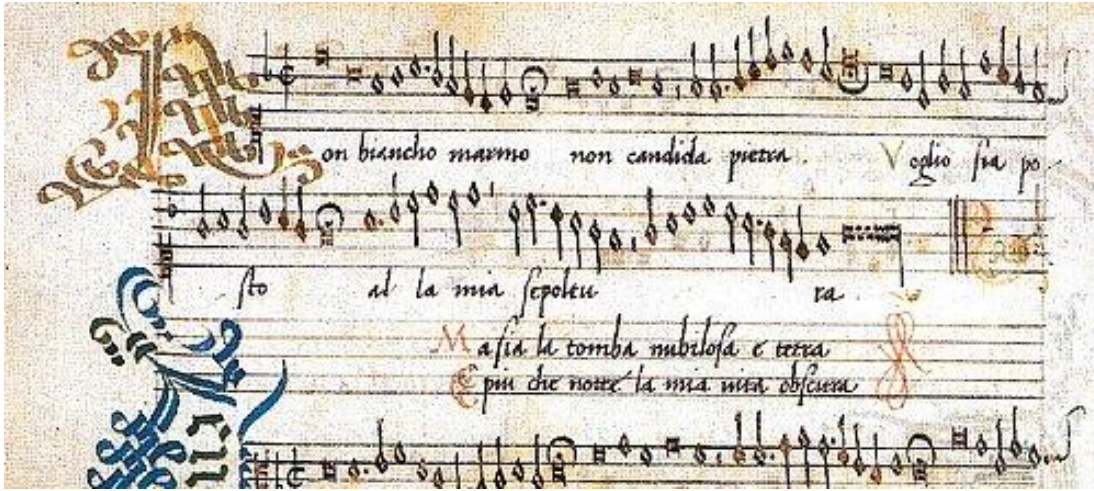 Non biancho marmo non candida pietra. Voglio sia po
sto al la mia sepoltu ra.
Ma sia la tomba nubilosa e tetra
E piu che notte la mia vita obscura